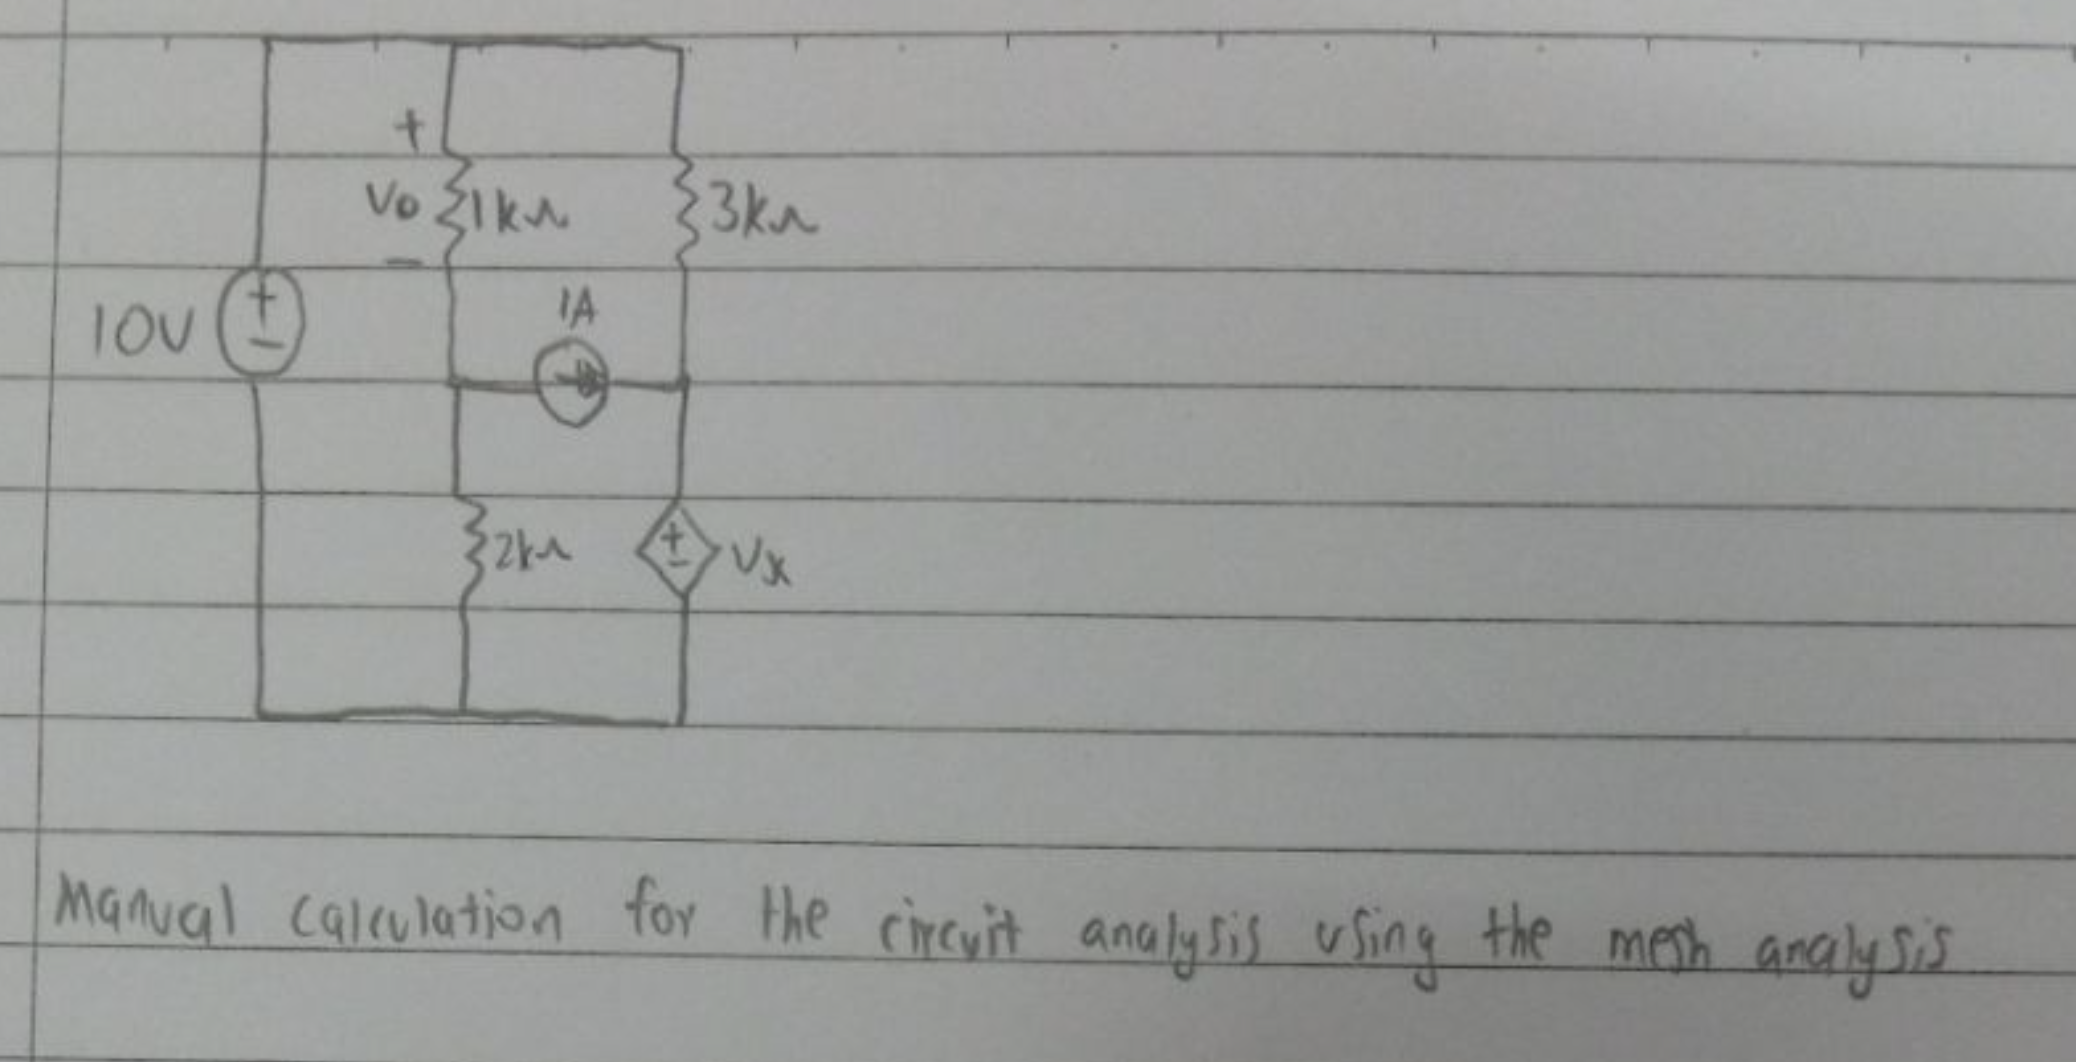 +
Vo 1kΩ 3kΩ
-
1A
10V + -
2kΩ + - Vx
Manual calculation for the circuit analysis using the mesh analysis